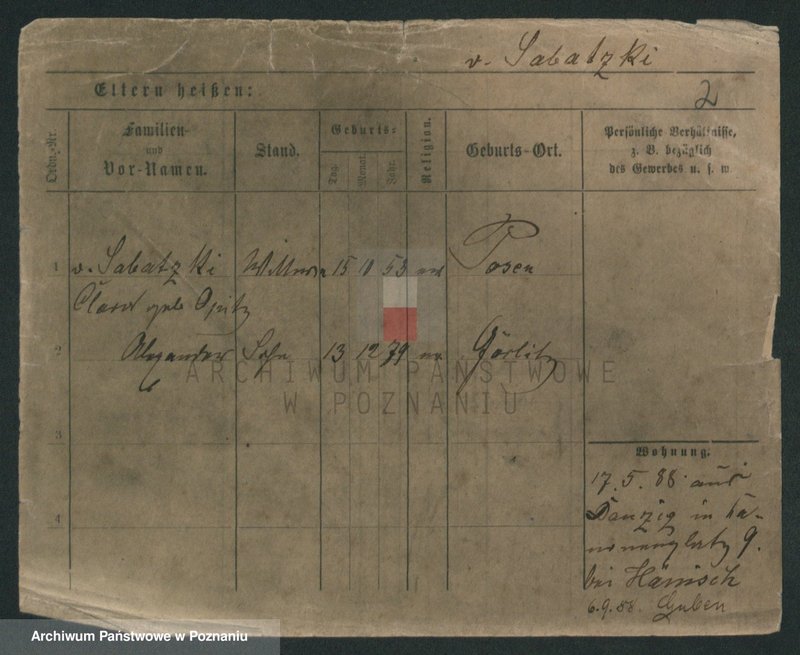 v. Sabatzki
Eltern heißen:
2
Ordn.-Nr.
Familien- und Vor-Namen.
Stand.
Geburts-
Tag.
Monat.
Jahr.
Religion.
Geburts-Ort.
Persönliche Verhältnisse,
z. B. bezüglich
des Gewerbes u. s. w.
1 v. Sabatzki 15 53 Posen
Clara geb. Opitz
2 Alexander Sohn 13 12 79 Görlitz
3
4
ARCHIWUM PAŃSTWOWE
W POZNANIU
Wohnung.
17.5.88. aus
Danzig in Ka-
nonenplatz 9.
bei Hänisch
6.9.88. Guben
Archiwum Państwowe w Poznaniu